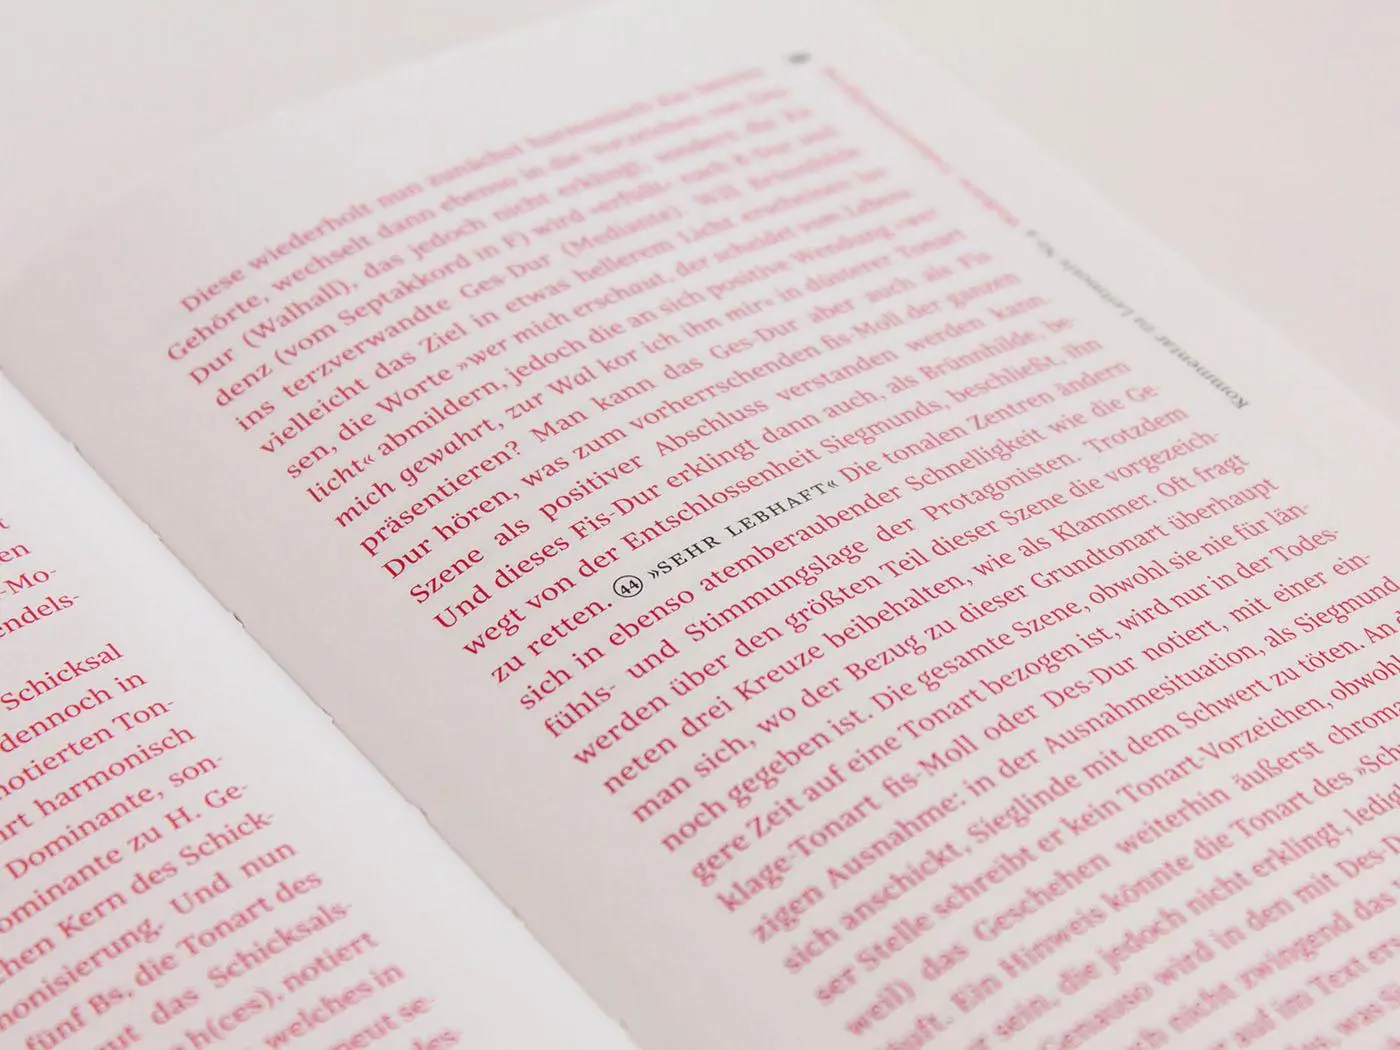 t
en
-Mo-
endels-
Schicksal
dennoch in
notierten Ton-
harmonisch
Dominante, son-
ominante zu H. Ge-
chen Kern des Schick-
monisierung. Und nun
fünf Bs, die Tonart des
das Schicksals-
h(ces), notiert
welches in
neut se-
Diese wiederholt nun zunächst harmonisch das
Gehörte, wechselt dann ebenso in die
Dur (Walhall), das jedoch nicht erklingt, sondern die
denz (vom Septakkord in F) wird nach
ins terzverwandte Ges-Dur (Mediante). Will Brünnhilde
vielleicht das Ziel in etwas hellerem Licht erscheinen las-
sen, die Worte »wer mich erschaut, der scheidet vom Lebens-
licht« abmildern, jedoch die an sich positive Wendung »wer
mich gewahrt, zur Wal kor ich ihn mir« in düsterer Tonart
präsentieren? Man kann das Ges-Dur aber auch als Fis-
Dur hören, was zum vorherrschenden fis-Moll der ganzen
Szene als positiver Abschluss verstanden werden kann.
Und dieses Fis-Dur erklingt dann auch, als Brünnhilde, be-
wegt von der Entschlossenheit Siegmunds, beschließt, ihn
zu retten. 44 »SEHR LEBHAFT« Die tonalen Zentren ändern
sich in ebenso atemberaubender Schnelligkeit wie die Ge-
fühls- und Stimmungslage der Protagonisten. Trotzdem
werden über den größten Teil dieser Szene die vorgezeich-
neten drei Kreuze beibehalten, wie als Klammer. Oft fragt
man sich, wo der Bezug zu dieser Grundtonart überhaupt
noch gegeben ist. Die gesamte Szene, obwohl sie nie für län-
gere Zeit auf eine Tonart bezogen ist, wird nur in der Todes-
klage-Tonart fis-Moll oder Des-Dur notiert, mit einer ein-
zigen Ausnahme: in der Ausnahmesituation, als Siegmund
sich anschickt, Sieglinde mit dem Schwert zu töten. An
ser Stelle schreibt er kein Tonart-Vorzeichen, obwohl
weil) das Geschehen weiterhin äußerst chrom
Ein Hinweis könnte die Tonart des »Sch
sein, die jedoch nicht erklingt, ledig
Genauso wird in den mit Des-D
nicht zwingend das
auf im Text er
was
Kommentar zu Leitmotiv Nr.